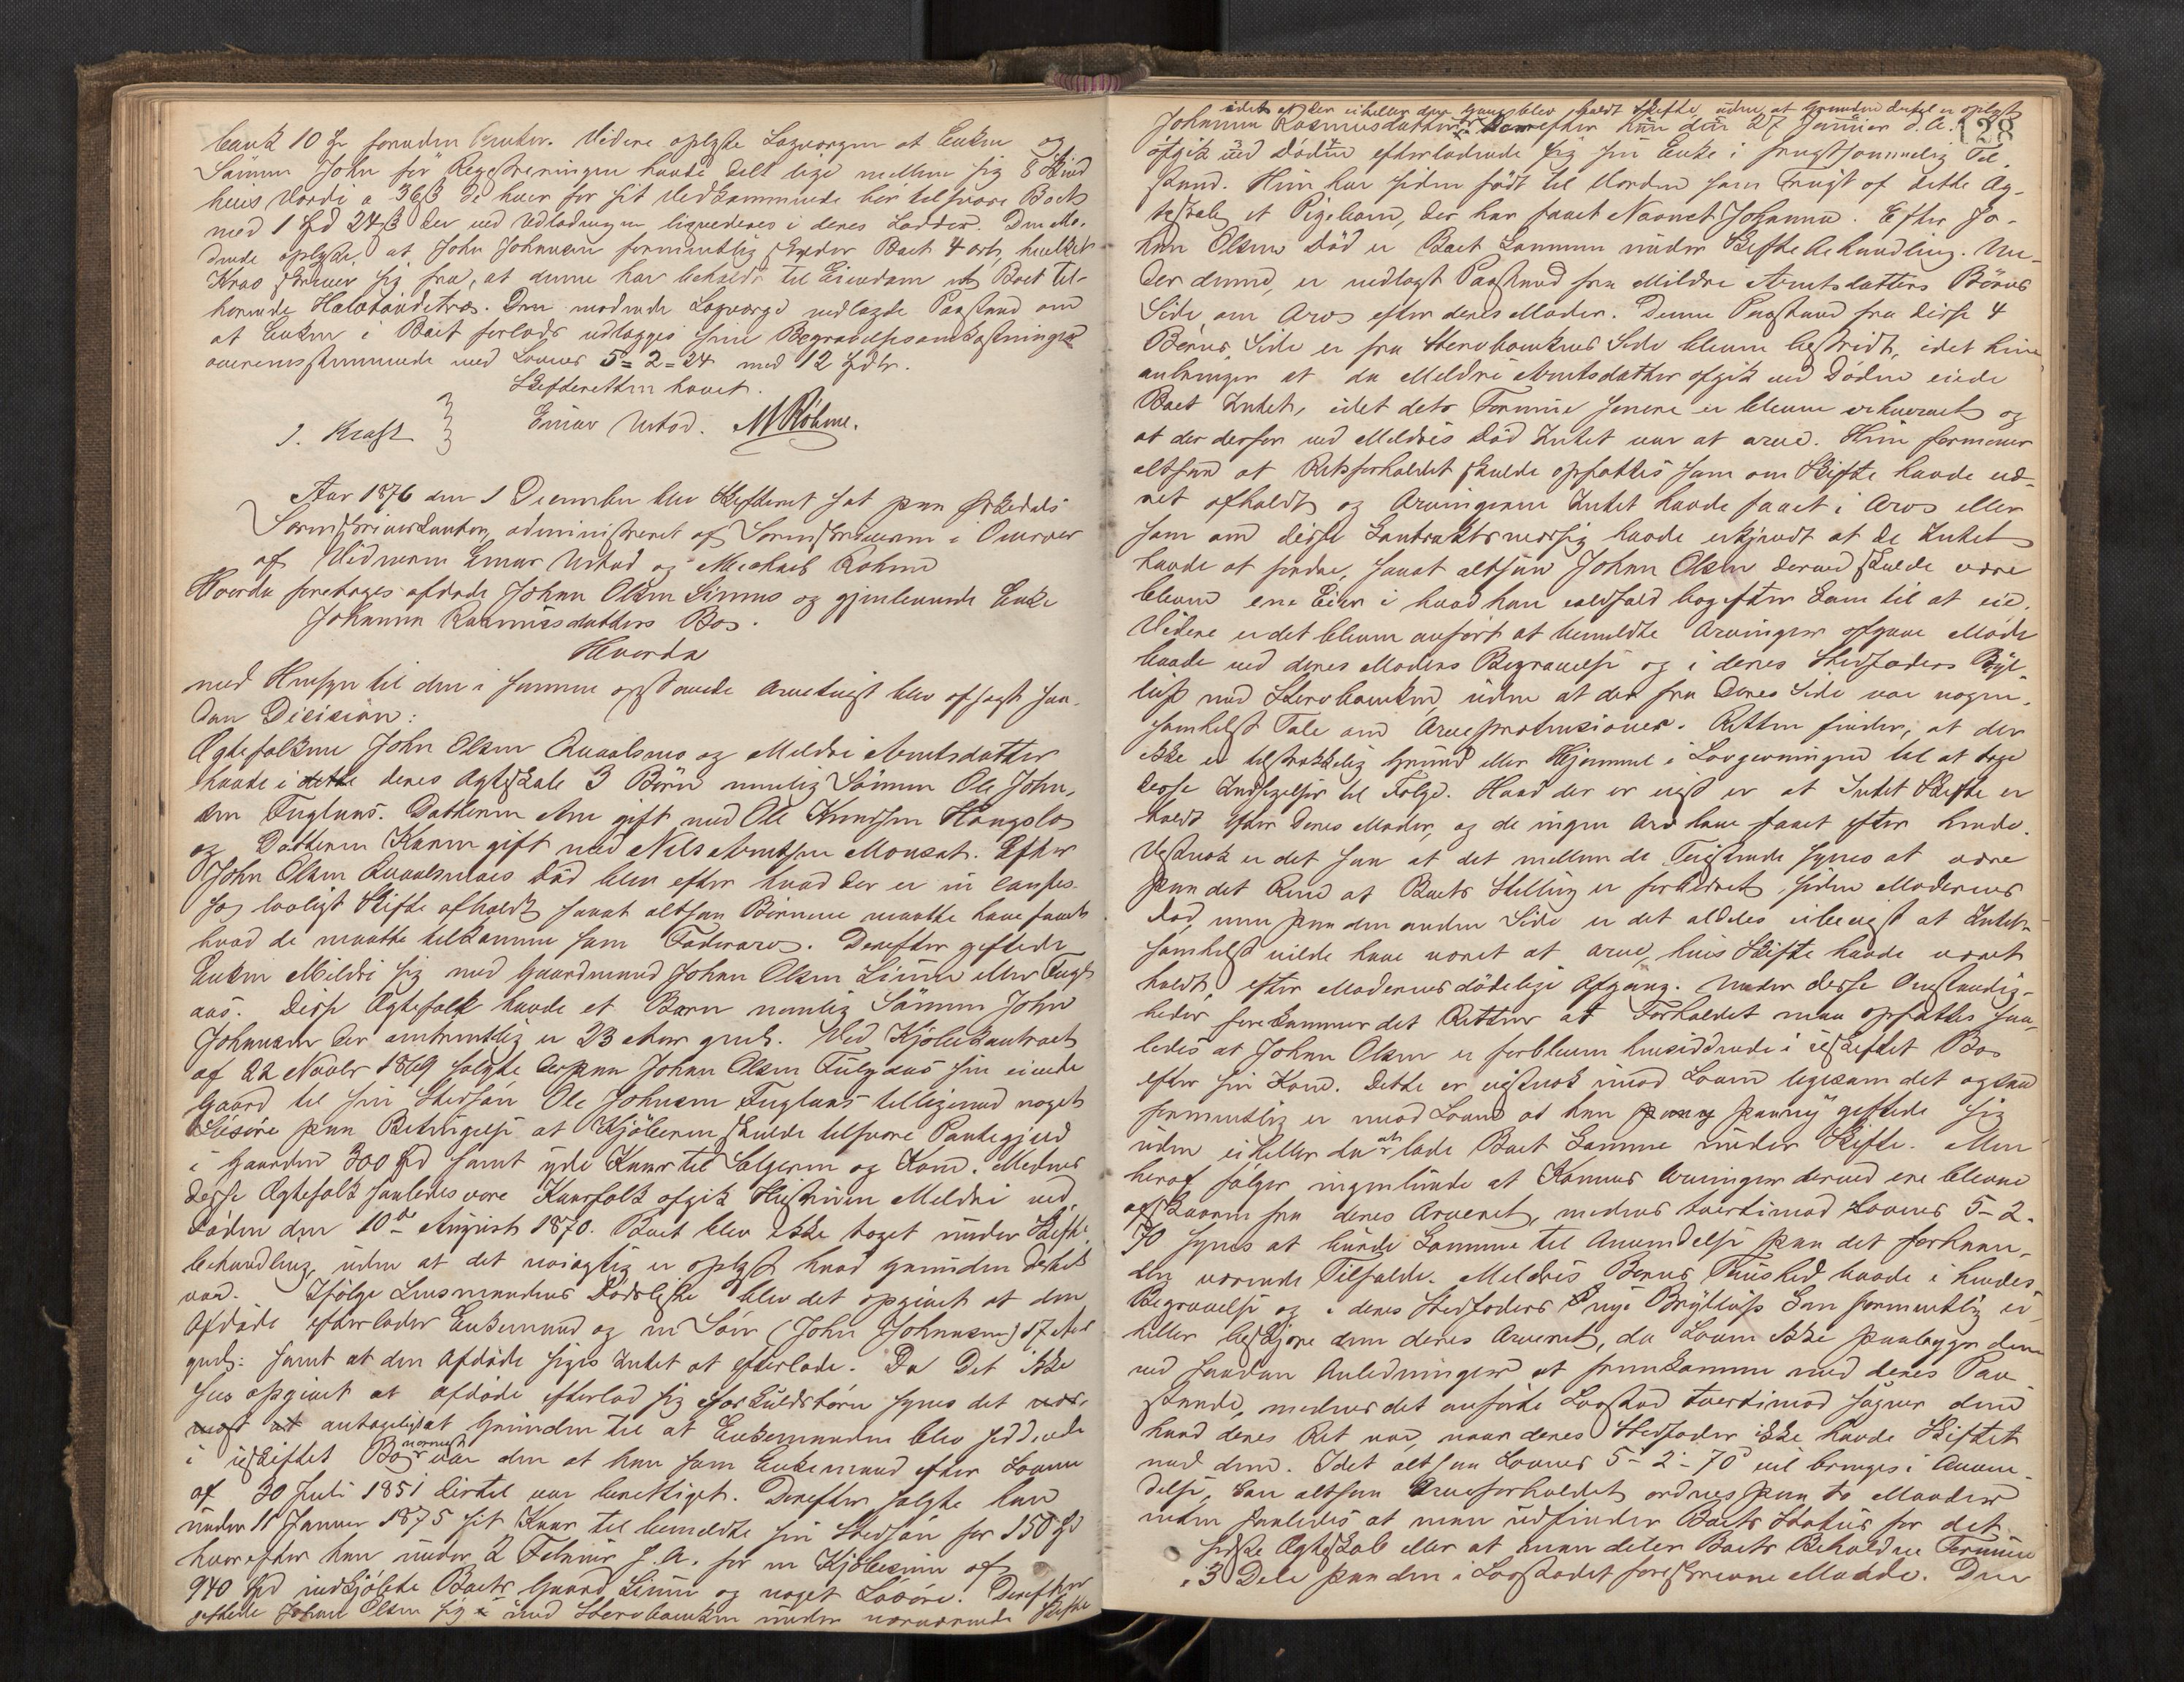 bank 10 Sp foruden Renter. Videre oplyste Laugvergen at Enken og
Sönnen John før Registreringen havde delt lige mellem sig 8 Skind
hvis Værdi a 36 ß de hver for sit Vedkommende bør tilsvare Boet
med 1 Spd 24 ß der ved Udlodningen ligneedenes i deres Lodder. Den Mø-
dende oplyste, at John Johnsen formentlig skylder Boet 4 ort, hvilket
Krav skriver sig fra, at denne har beholdt til Eiendom et Boet til-
hørende . Den mødende Lagverge nedlagde Paastand om
at Enken i Boet forlods udlægges sine Begravelsesomkostninger
overensstemmende med Lovens 5-2-24 med 12 Spdlr.
Skifteretten hævet.
J. Kraft Einar Ustad. M Röhme.
Aar 1876 den 1 December blev Skifteret sat paa Ørkedals
Sorenskriverkontor, administreret af Sorenskriveren i Overvær
af Vidnerne Einar Ustad og Michael Rohme
Hvorda foretages afdøde Johan Olsen Linns og gjenlevende Enke
Johanna Rasmusdatters Bo.
Hvorda
med Hensyn til den i samme opstaaede Arvetvist blev afsagt saa-
dan Decision:
Ægtefolkene John Olsen Kvaalsnæs og Meldri Arntsdatter
havde i dette deres Ægteskab 3 Børn nemlig Sönnen Ole John-
sen Fuglaas. Datteren Ane gift med Ole Knudsen Haugslo
og Datteren Karen gift med Nils Arntsen Monset. Efter
John Olsen Kvaalsnæs Död blev efter hvad der er in confes-
so lovligt Skifte afholdt saaat altsaa Börnene maatte have faaet
hvad de maatte tilkomme som Fædrearv. Derefter giftede
Enken Mildri sig med Gaardmand Johan Olsen Linn eller Fugl-
aas. Disse Ægtefolk havde et Barn nemlig Sönnen John
Johnsen der omtrentlig er 23 Aar gml. Ved Kjöbekontract
af 22 Novbr 1869 solgte derpaa Johan Olsen Fuglaas sin eiende
Gaard til sin Stedsön Ole Johnsen Fuglaas tilligemed noget
Løsøre paa Betingelse at Kjöberen skulde tilsvare Pantegjeld
i Gaarden 300 Spd samt yde Kaar til Sælgeren og Kone. Medens
disse Ægtefolk saaledes vare Kaarfolk afgik Hustruen Meldri ved
Döden den 10de August 1870. Boet blev ikke taget under Skifte-
behandling, uden at det nøiagtig er oplyst hvad Grunden dertil
var. Ifölge Lensmandens Dödsliste blev det opgivet at den
Afdøde efterlader Enkemand og en Søn (John Johnsen) 17 Aar
gml: samt at den Afdøde siges Intet at efterlade. Da Det ikke
sees opgivet at afdøde efterlod sig forskuldbörn synes det
antageligst at Grunden til at Enkemanden blev siddende
i uskiftet Bo nærmest var den at han som Enkemand efter Loven
af 30 Juli 1851 dertil var berettiget. Derefter solgte han
under 11 Januar 1875 sit Kaar til bemeldte sin Stedsön for 150 Spd
hvorefter han under 2 Februar s. A. for en Kjøbesum af
940 Spd indkjöbte Boets Gaard Linn og noget Løsøre. Derefter
giftede Johan Olsen sig med Stervboenken under nærværende Skifte
idet at der eiheller dengang blev holdt Skifte uden at Grunden dertil er oplyst
Johanna Rasmusdatter Hvorefter han den 27 Januar d. A. 128
afgik ved Døden efterladende sig sin Enke i frugtsommelig Til-
stand. Hun har siden født til Verden som Frugt af dette Æg-
teskab et Pigebarn, der har faaet Navnet Johanna. Efter Jo-
han Olsens Död er Boet kommen under Skiftebehandling. Un-
der denne, er nedlagt Paastand fra Mildri Arntsdatters Börns
Side om Arv efter deres Moder. Denne Paastand fra disse 4
Börns Side er fra Stervboenkens Side bleven bestridt, idet hun
anbringer at da Meldri Arntsdatter afgik ved Døden eiede
Boet Intet, idet dets Formue senere er bleven erhvervet og
at der derfor ved Meldris Död Intet var at arve. Hun formener
altsaa at Retsforholdet skulde opfattes som om Skifte havde væ-
ret afholdt og Arvingerne Intet havde faaet i Arv eller
som om disse kontraktsmæssig havde erkjendt at de Intet
havde at fordre, saaat altsaa Johan Olsen derved skulde være
bleven ene Eier i hvad han ialdfald bagefter kom til at eie.
Videre er det bleven anført at bemeldte Arvinger afgave Møde
baade ved deres Moders Begravelse og i deres Stedfaders Bryl-
lup med Stervboenken, uden at der fra deres Side var nogen-
somhelst Tale om Arveprætensioner. Retten finder, at der
ikke er tilstrækkelig Grund eller Hjemmel i Lovgivningen til at tage
disse Indsigelser til Følge. Hvad der er vist er at Intet Skifte er
holdt efter deres Moder, og de ingen Arv have faaet efter hende.
Vistnok er det saa at det mellem de Tvistende synes at være
paa det Rene at Boets Stilling er forbedret siden Moderens
Död, men paa den anden Side er det aldeles ubevist at Intet-
somhelst vilde have været at arve, hvis Skifte havde været
holdt efter Moderens dødelige Afgang. Under disse Omstændig-
heder forekommer det Retten at Forholdet maa opfattes saa-
ledes at Johan Olsen er forbleven hensiddende i uskiftet Bo
efter sin Kone. Dette er vistnok imod Loven ligesom det ogsaa
formentlig er imod Loven at han paany giftede sig
uden eiheller da at lade Boet komme under Skifte. Men
heraf følger ingenlunde at Konens Arvinger derved ere blevne
afskaaren fra deres Arveret, medens tvertimod Lovens 5-2-
70 synes at burde komme til Anvendelse paa det forhaan-
den værende Tilfælde. Meldris Børns Taushed baade i hendes
Begravelse og i deres Stedfaders nye Bryllup kan formentlig ei-
heller beskjære dem deres Arveret, da Loven ikke paalægger dem
ved saadan Anledninger at fremkomme med deres Paa-
stande, medens det anførte Lovsted tvertimod siger dem
hvad deres Ret var, naar deres Stedfader ikke havde Skiftet
med dem. Idet altsaa Lovens 5-2-70 vil bringes i Anven-
delse, kan altsaa Arveforholdet ordnes paa to Maader
enten saaledes at man udfinder Boets Status for det
første Ægteskab eller at man deler Boets Beholdne Formue
i 3 Dele paa den i Lovstedet foreskrevne Maade. Den